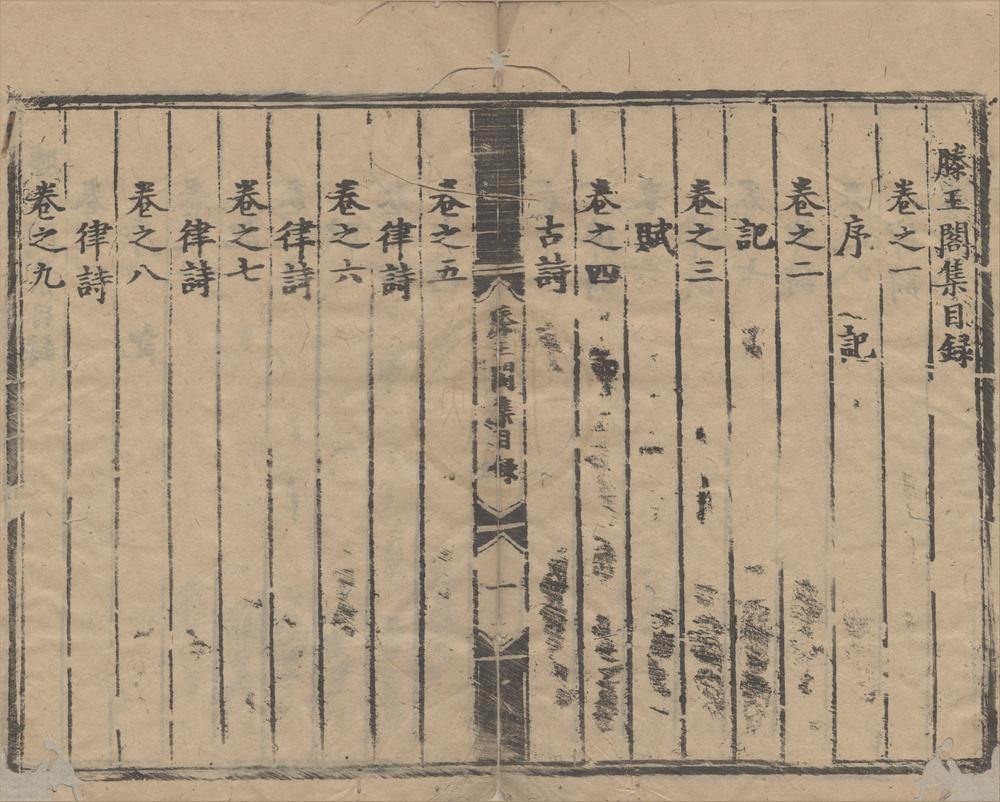 滕王閣集目録
卷之一
序　記
卷之二
記
卷之三
賦
卷之四
古詩
滕王閣集目録　一
卷之五
律詩
卷之六
律詩
卷之七
律詩
卷之八
律詩
卷之九